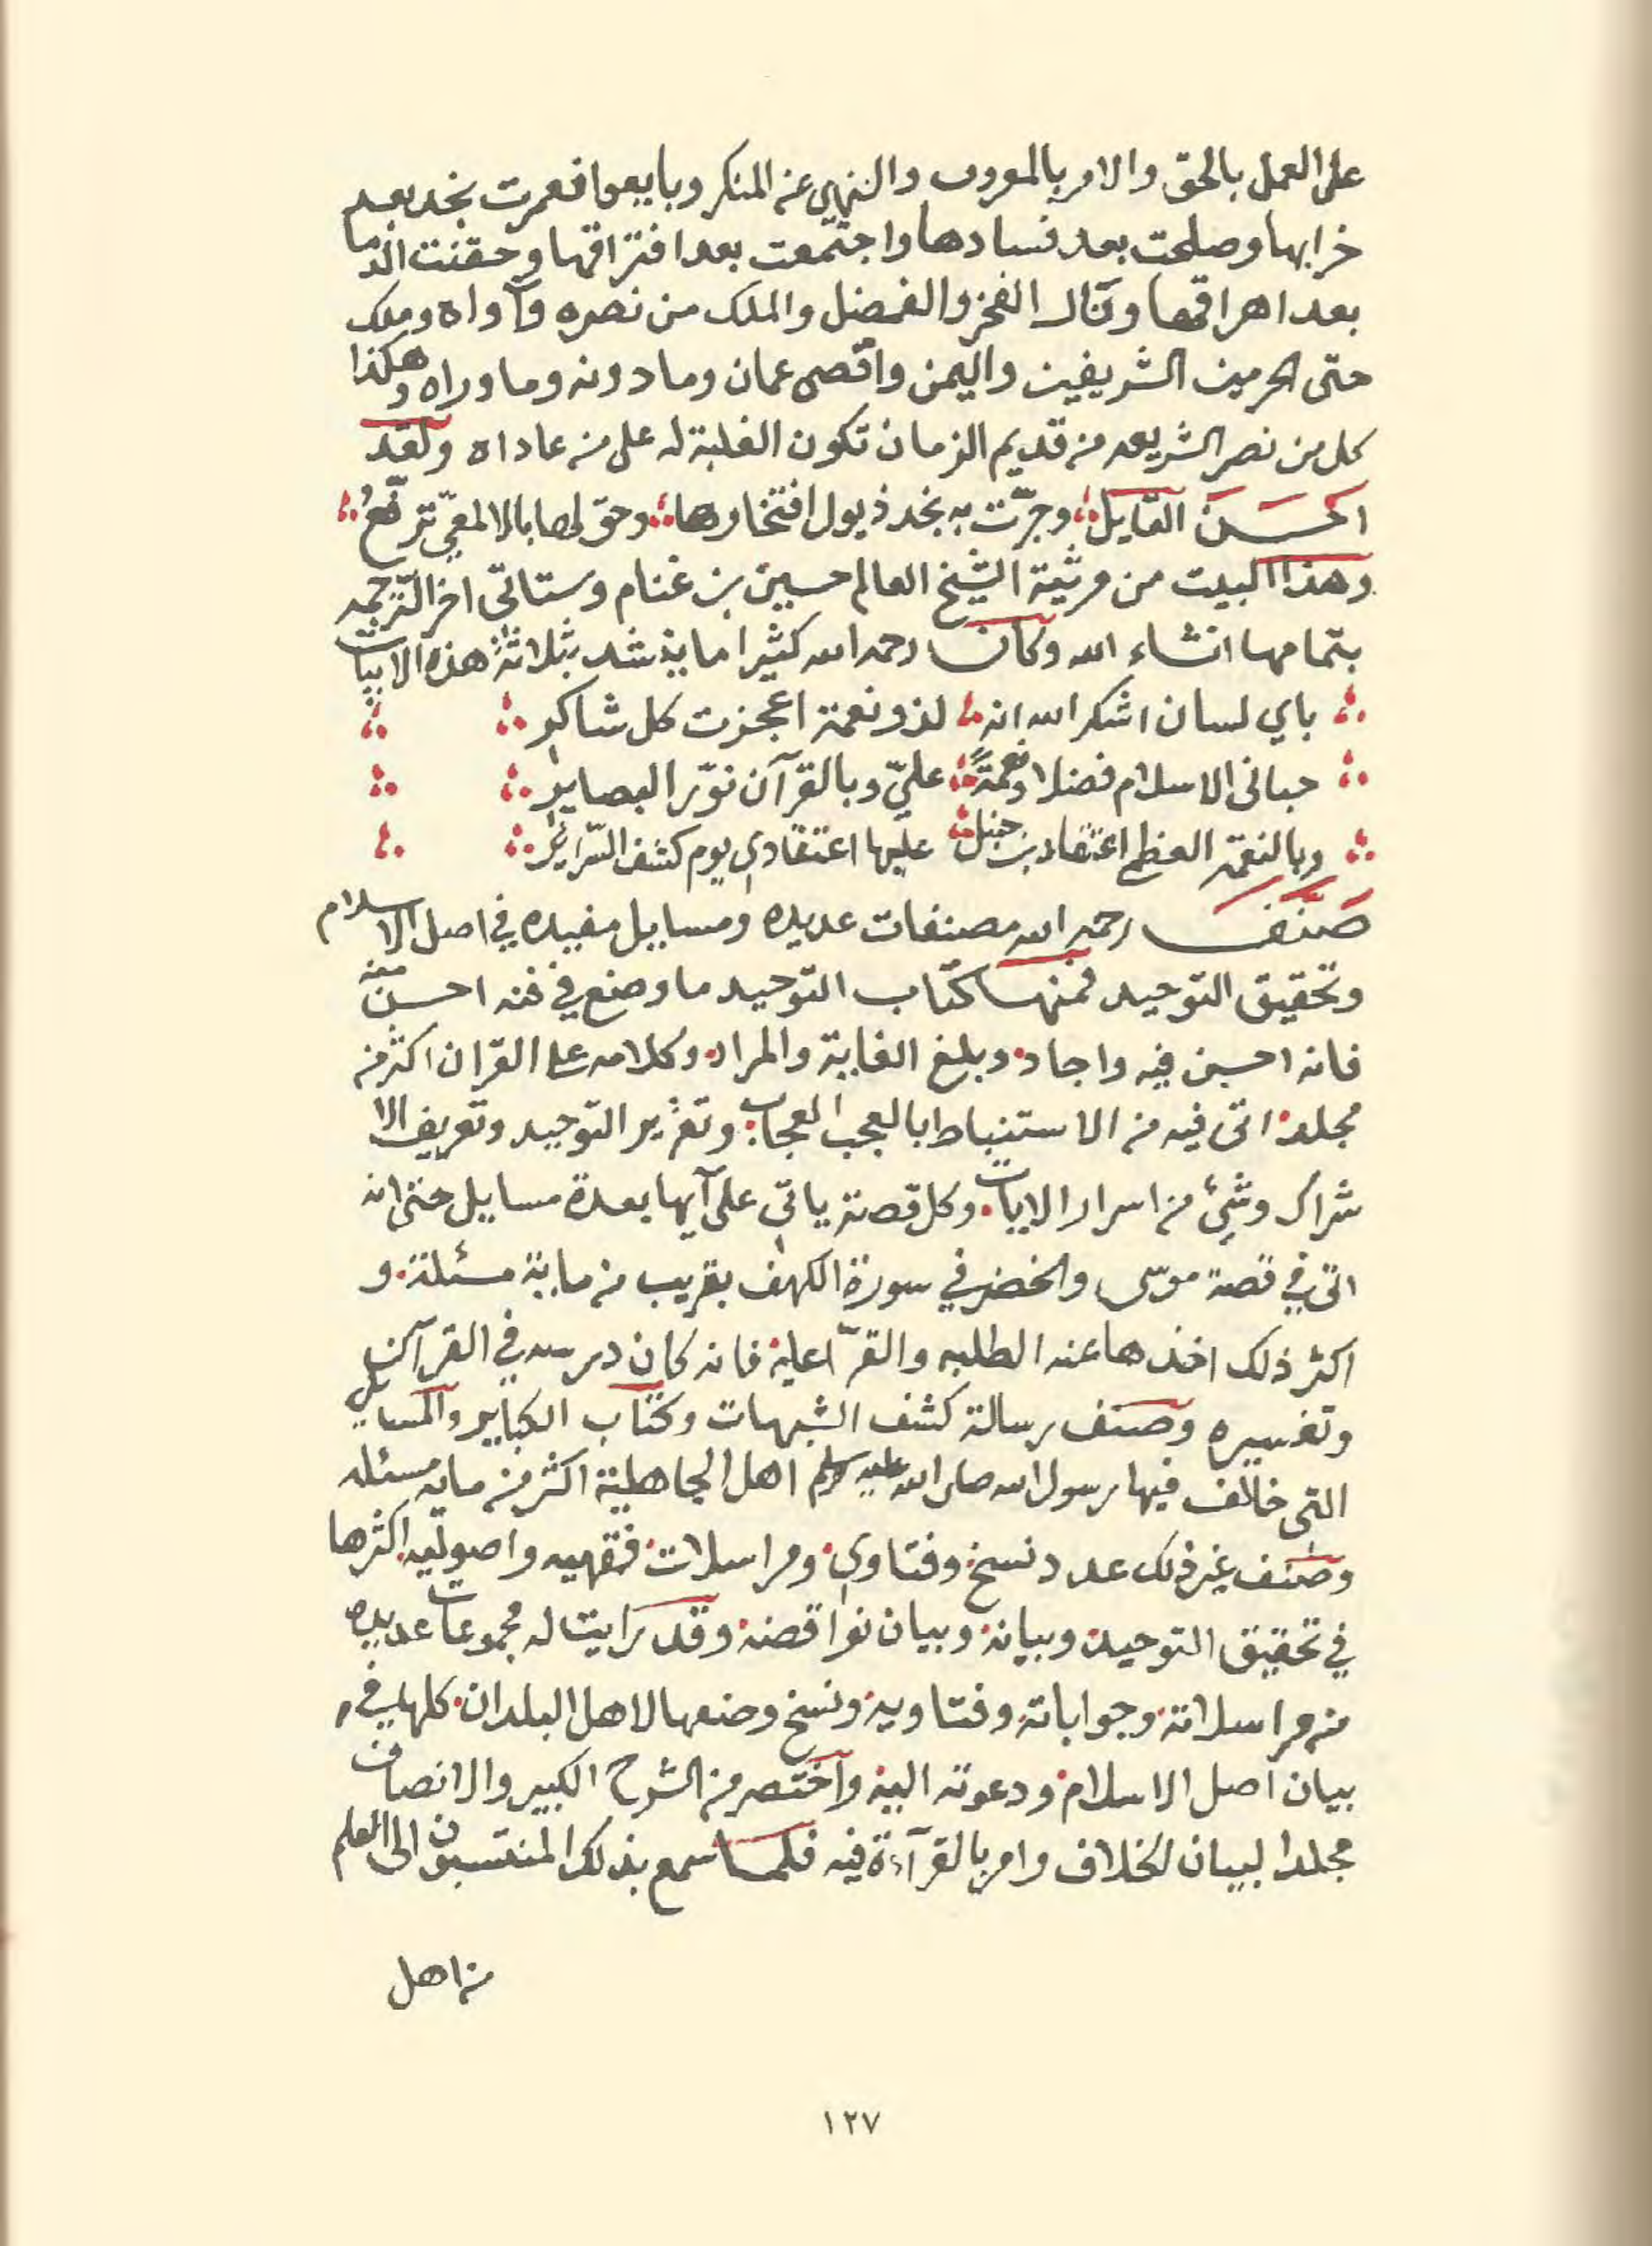 على العمل بالحق والامر بالمعروف والنهي عن المنكر وبايعوا فعمرت نجد بعد
خرابها وصلحت بعد فسادها واجتمعت بعد افتراقها وحقنت الدما
بعد اهراقها ونال الفخر والفضل والملك من نصره وآواه وملك
حتى الحرمين الشريفين واليمن واقصى عمان وما دونه وما وراه وهكذا
كل من نصر الشريعه من قديم الزمان تكون الغلبة له على من عاداه ولقد
احسن القايل وجرّت به نجد ذيول افتخارها وحق لها بالالمعيّ ترفّعُ
وهذا البيت من مرثية الشيخ العالم حسين بن غنام وستاتي اخر الترجمه
بتمامها انشاء الله وكان رحمه الله كثيرا ما ينشد بثلاثة هذه الابيات
باي لسان اشكر الله انه لذو نعمة اعجزت كل شاكر
حباني الاسلام فضلا ونعمةً عليّ وبالقرآن نوّر البصاير
وبالنعمة العظمى اعتقاد بن حنبل عليها اعتقادي يوم كشف السّراير
صَنَّفَ رحمه الله مصنفات عديده ومسايل مفيده في اصل الاسلام
وتحقيق التوحيد فمنها كتاب التوحيد ما وضع في فنه احسن منه
فانه احسن فيه واجاد وبلغ الغاية والمراد وكلامه على القران اكثر من
مجلد اتى فيه من الاستنباط بالعجب العجاب وتقرير التوحيد وتعريف الا
شراك وشئ من اسرار الايات وكل قصة ياتي على آيها بعدة مسايل حتى انه
اتى في قصة موسى والخضر في سورة الكهف بقريب من ماية مسئلة و
اكثر ذلك اخذها عنه الطلبه والقرّا عليه فانه كان درسه في القرآن
وتفسيره وصنف رسالة كشف الشبهات وكتاب الكباير والمسايل
التي خالف فيها رسول الله صلى الله عليه وسلم اهل الجاهلية اكثر من مايه مسئله
وصنف غير ذلك عدد نسخ وفتاوى ومراسلات فقهيه واصوليه اكثرها
في تحقيق التوحيد وبيانه وبيان نواقضه وقد رايت له مجموعات عديده
من مراسلاته وجواباته وفتاويه ونسخ وضعها لاهل البلدان كلها في
بيان اصل الاسلام ودعوته اليه واختصر من الشرح الكبير والانصاف
مجلدا لبيان الخلاف وامر بالقرآءة فيه فلما سمع بذلك المنتسبون الى العلم
من اهل
١٢٧